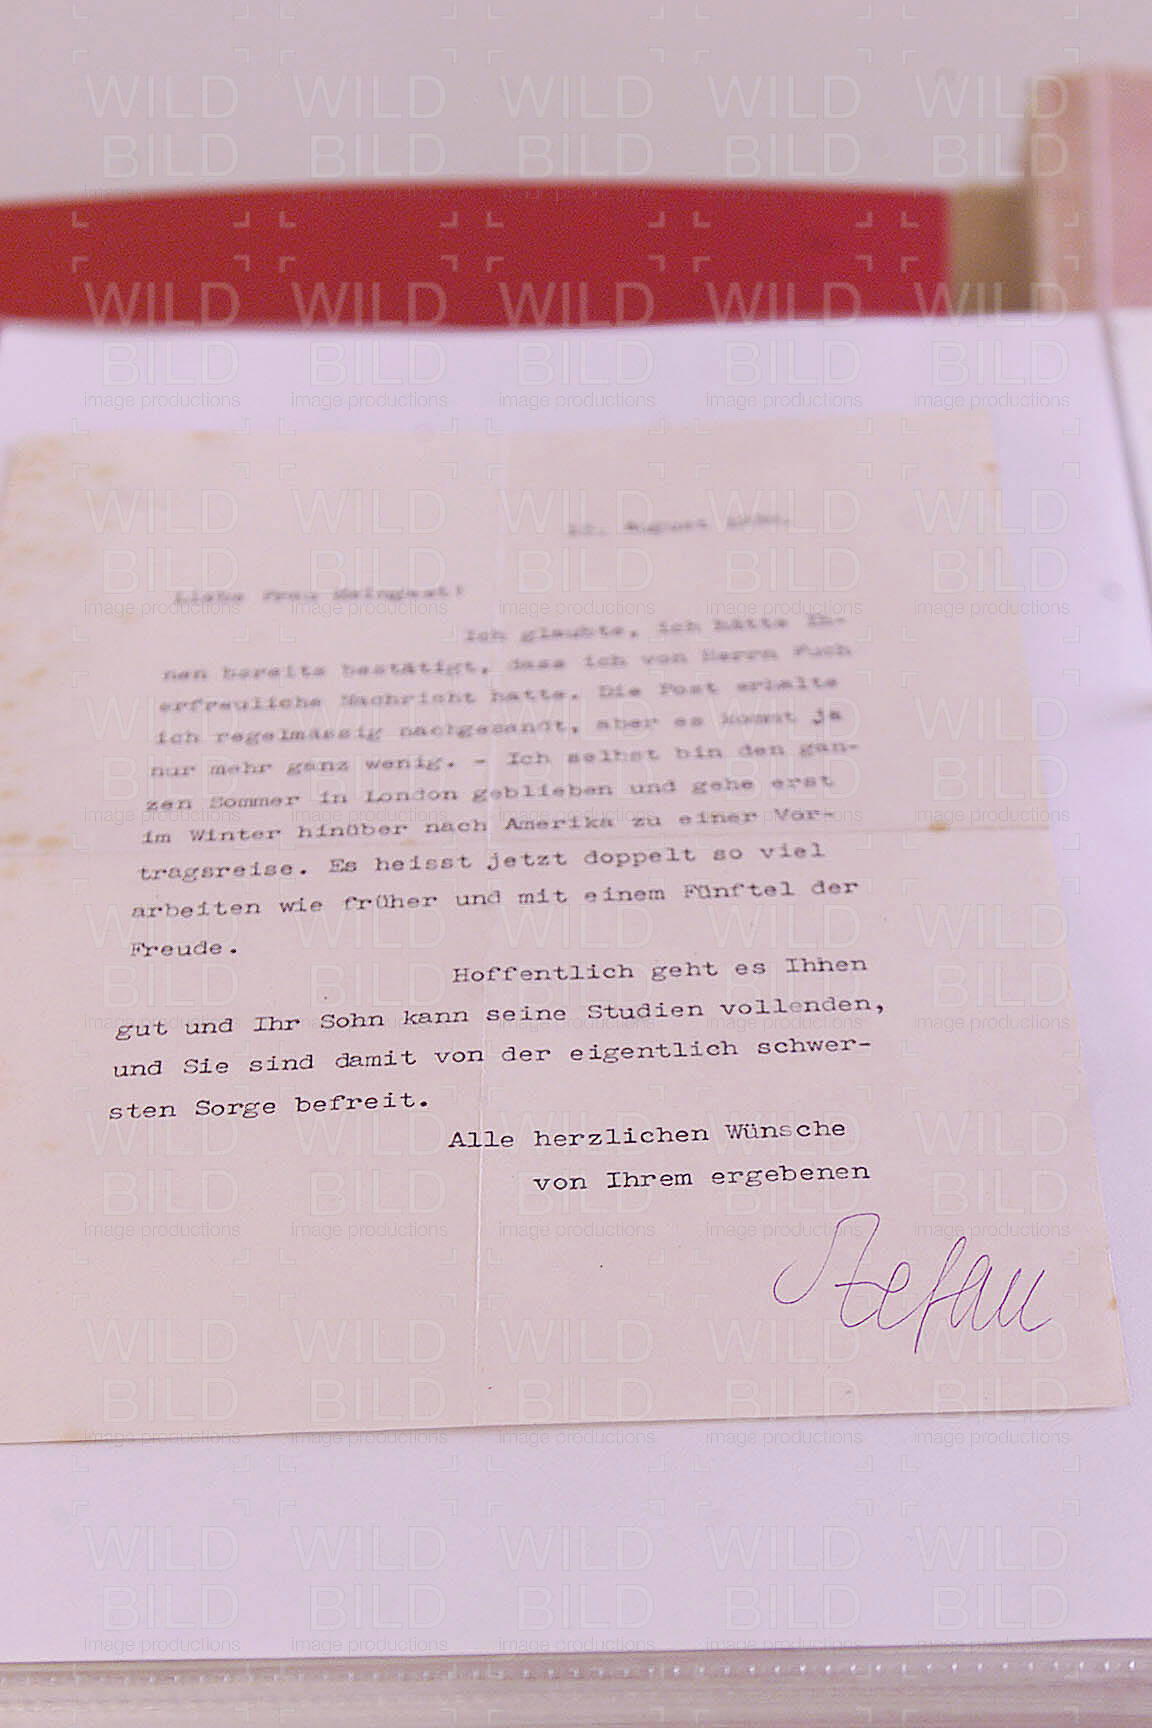 12. August
Liebe Frau Meingast!
Ich glaubte, ich hätte Ih-
nen bereits bestätigt, dass ich von Herrn Fuch
erfreuliche Nachricht hatte. Die Post erhalte
ich regelmässig nachgesandt, aber es kommt ja
nur mehr ganz wenig. - Ich selbst bin den gan-
zen Sommer in London geblieben und gehe erst
im Winter hinüber nach Amerika zu einer Vor-
tragsreise. Es heisst jetzt doppelt so viel
arbeiten wie früher und mit einem Fünftel der
Freude.
Hoffentlich geht es Ihnen
gut und Ihr Sohn kann seine Studien vollenden,
und Sie sind damit von der eigentlich schwer-
sten Sorge befreit.
Alle herzlichen Wünsche
von Ihrem ergebenen
Stefan
WILD
BILD
image productions